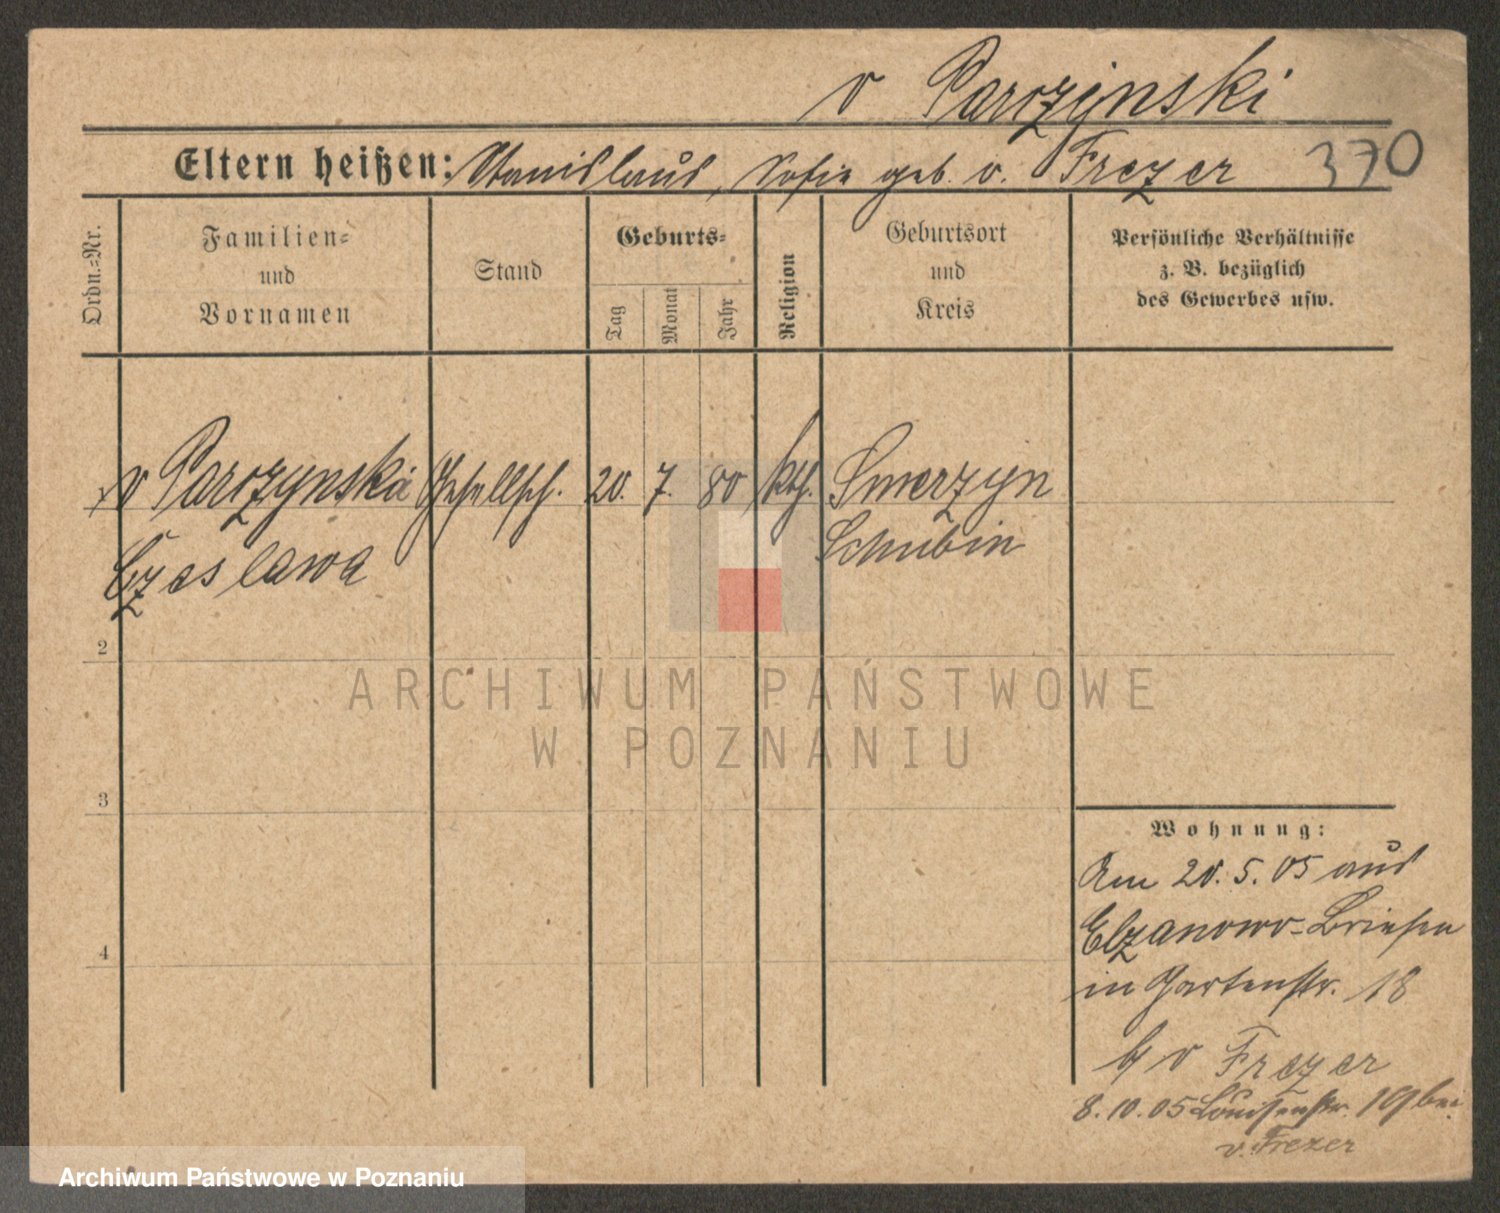 v Parczynski
Eltern heißen: Stanislaus, Sofie geb. v. Frezer 370
Ordn.=Nr.
Familien=
und
Vornamen
Stand
Geburts=
Tag
Monat
Jahr
Religion
Geburtsort
und
Kreis
Persönliche Verhältnisse
z. B. bezüglich
des Gewerbes usw.
v Parczynska Gesellsch. 20. 7. 80 kth. Smerzyn
Czeslawa Schubin
2
3
4
Wohnung:
Am 20. 5. 05 aus
Elzanowo-Briesen
in Gartenstr. 18
b v Frezer
8. 10. 05 Louisenstr. 19 bei
v. Frezer
ARCHIWUM PAŃSTWOWE
W POZNANIU
Archiwum Państwowe w Poznaniu